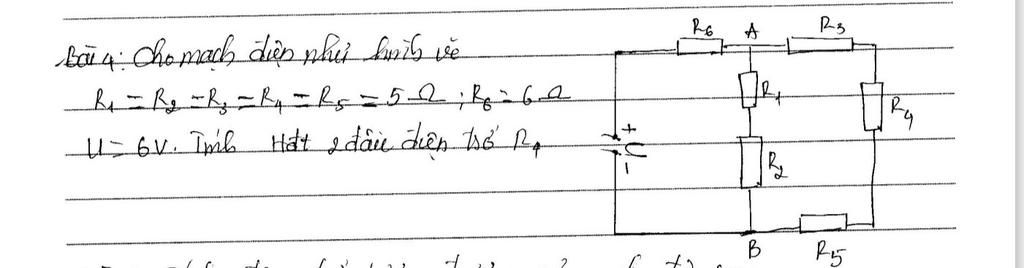 Bài 4: Cho mạch điện như hình vẽ
R1 = R2 = R3 = R4 = R5 = 5 Ω ; R6 = 6 Ω
U = 6V. Tính Hđt 2 đầu điện trở
R6 A R3
R1
R4
+
U
-
R2
B R5